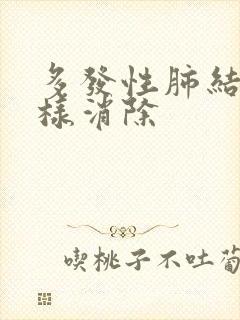 多發性肺結
樣消除
喫桃子不吐葡